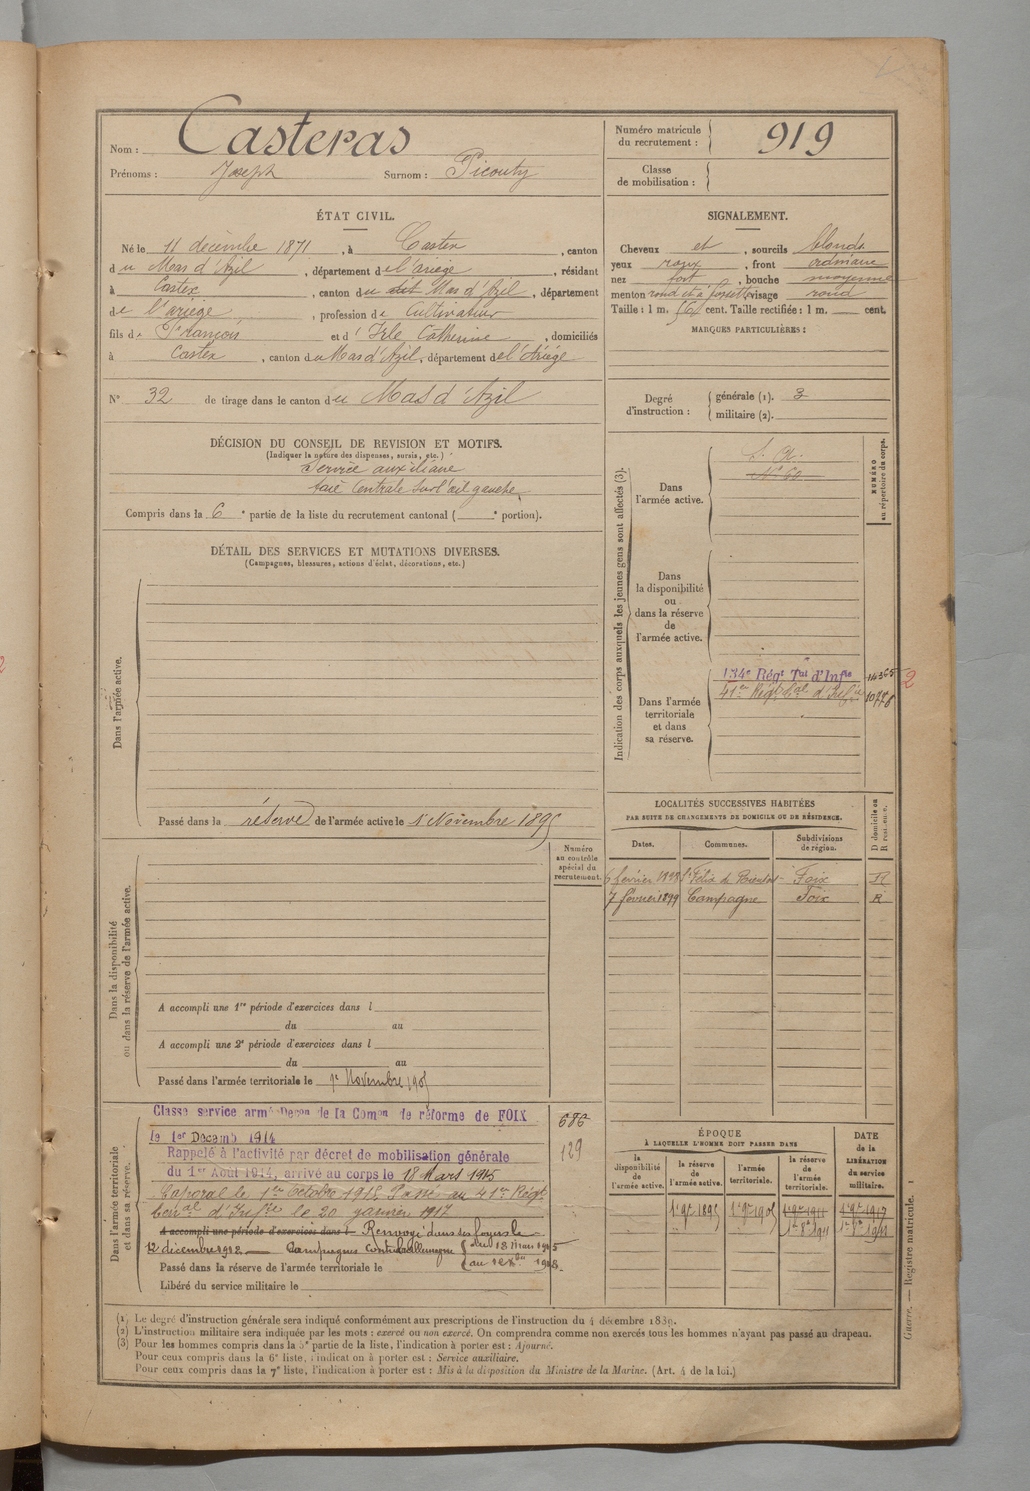 Nom : Casteras
Prénoms : Joseph Surnom : Picouty
Numéro matricule du recrutement : 919
Classe de mobilisation :
ÉTAT CIVIL.
Né le 11 décembre 1871, à Castex, canton
du Mas d'Azil, département de l'ariège, résidant
à Castex, canton du Mas d'Azil, département
de l'ariège, profession de Cultivateur
fils de François et d' Isle Catherine, domiciliés
à Castex, canton du Mas d'Azil, département de l'Ariège
N° 32 de tirage dans le canton du Mas d'Azil
SIGNALEMENT.
Cheveux et, sourcils blonds
yeux roux, front ordinaire
nez fort, bouche moyenne
menton rond et à fossette, visage rond
Taille : 1 m. cent. Taille rectifiée : 1 m. cent.
MARQUES PARTICULIÈRES :
Degré d'instruction : générale (1). 3
militaire (2).
DÉCISION DU CONSEIL DE REVISION ET MOTIFS.
(Indiquer la nature des dispenses, sursis, etc.)
Service auxiliaire
taie Centrale sur l'œil gauche
Compris dans la 6e partie de la liste du recrutement cantonal ( e portion).
DÉTAIL DES SERVICES ET MUTATIONS DIVERSES.
(Campagnes, blessures, actions d'éclat, décorations, etc.)
Dans l'armée active.
Passé dans la réserve de l'armée active le 1 Novembre 1895
Indication des corps auxquels les jeunes gens sont affectés (3).
NUMÉRO au répertoire du corps.
Dans l'armée active.
Dans la disponibilité ou dans la réserve de l'armée active.
Dans l'armée territoriale et dans sa réserve.
134e Régt Tal d'Infie 14365 2
41er Régt Cal d'Infie
LOCALITÉS SUCCESSIVES HABITÉES
PAR SUITE DE CHANGEMENTS DE DOMICILE OU DE RÉSIDENCE.
Dates. Communes. Subdivisions de région. D domicile ou R résidence.
6 février 1898 Foix R
7 février 1899 Campagne Foix R
Dans la disponibilité ou dans la réserve de l'armée active.
Numéro au contrôle spécial du recrutement.
A accompli une 1re période d'exercices dans l
du au
A accompli une 2e période d'exercices dans l
du au
Passé dans l'armée territoriale le 1er Novembre 1905
Dans l'armée territoriale et dans sa réserve.
Classé service armé Décon de la Comon de réforme de FOIX 686
le 1er Décemb 1914 129
Rappelé à l'activité par décret de mobilisation générale
du 1er Août 1914, arrivé au corps le 18 Mars 1915
Caporal le 1er Octobre 1915 Passé au 41er Régt
d'Infie le 20 janvier 1917
A accompli une période d'exercices dans l Renvoyé dans ses foyers le
12 décembre 1918 — Campagnes Contre Allemagne du 18 mars 1915
Passé dans la réserve de l'armée territoriale le
Libéré du service militaire le
ÉPOQUE
À LAQUELLE L'HOMME DOIT PASSER DANS
la disponibilité de l'armée active. la réserve de l'armée active. l'armée territoriale. la réserve de l'armée territoriale.
DATE de la LIBÉRATION du service militaire.
1er 9bre 1895 1er 9bre 1905 1er 9bre 1911 1er 9bre 1917
(1) Le degré d'instruction générale sera indiqué conformément aux prescriptions de l'instruction du 4 décembre 1889.
(2) L'instruction militaire sera indiquée par les mots : exercé ou non exercé. On comprendra comme non exercés tous les hommes n'ayant pas passé au drapeau.
(3) Pour les hommes compris dans la 5e partie de la liste, l'indication à porter est : Ajourné.
Pour ceux compris dans la 6e liste, l'indication à porter est : Service auxiliaire.
Pour ceux compris dans la 7e liste, l'indication à porter est : Mis à la disposition du Ministre de la Marine. (Art. 4 de la loi.)
Guerre. — Registre matricule. 1